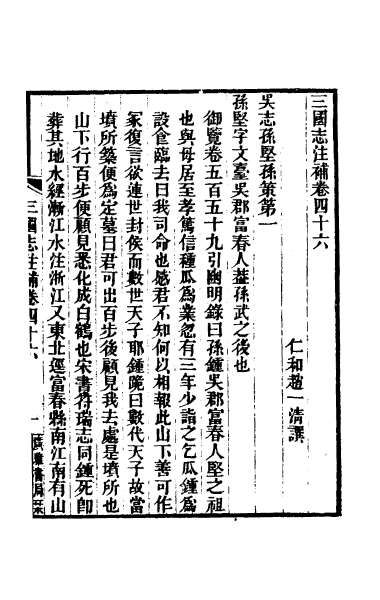 三國志注補卷四十六
仁和趙一清譔
吳志孫堅孫策第一
孫堅字文臺吳郡富春人葢孫武之後也
御覽卷五百五十九引幽明錄曰孫鍾吳郡富春人堅之祖
也與母居至孝篤信種瓜爲業忽有三年少詣之乞瓜鍾爲
設食臨去曰我司命也感君不知何以相報此山下善可作
冢復言欲連世封侯而數世天子耶鍾跪曰數代天子故當
墳所築便爲定墓曰君可出百步後顧見我去處是墳所也
山下行百步便顧見悉化成白鶴也宋書符瑞志同鍾死卽
葬其地水經漸江水注浙江又東北逕富春縣南江南有山
三國志注補卷四十六
一
廣雅書局栞